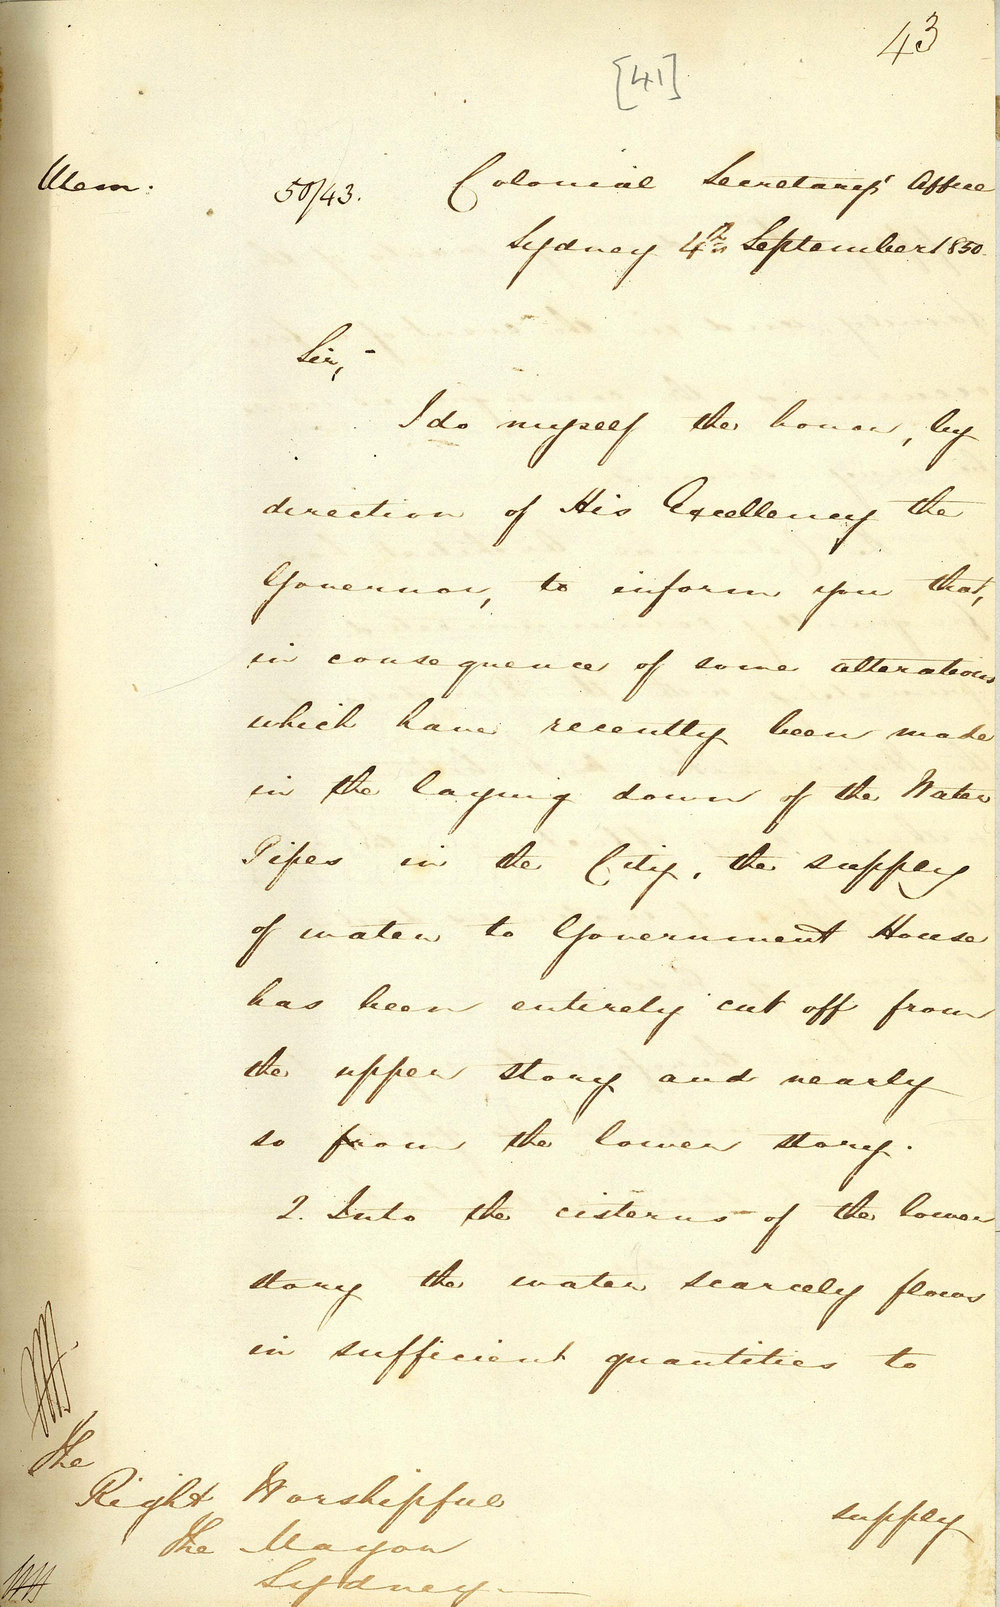 43
[41]
Mem.
50/43. Colonial Secretary's Office
Sydney 4th September 1850.
Sir,-
I do myself the honor, by
direction of His Excellency the
Governor, to inform you that,
in consequence of some alterations
which have recently been made
in the laying down of the Water
Pipes in the City, the supply
of water to Government House
has been entirely cut off from
the upper story and nearly
so from the lower story.
2. Into the cisterns of the lower
story the water scarcely flows
in sufficient quantities to
supply
The
Right Worshipful
The Mayor
Sydney